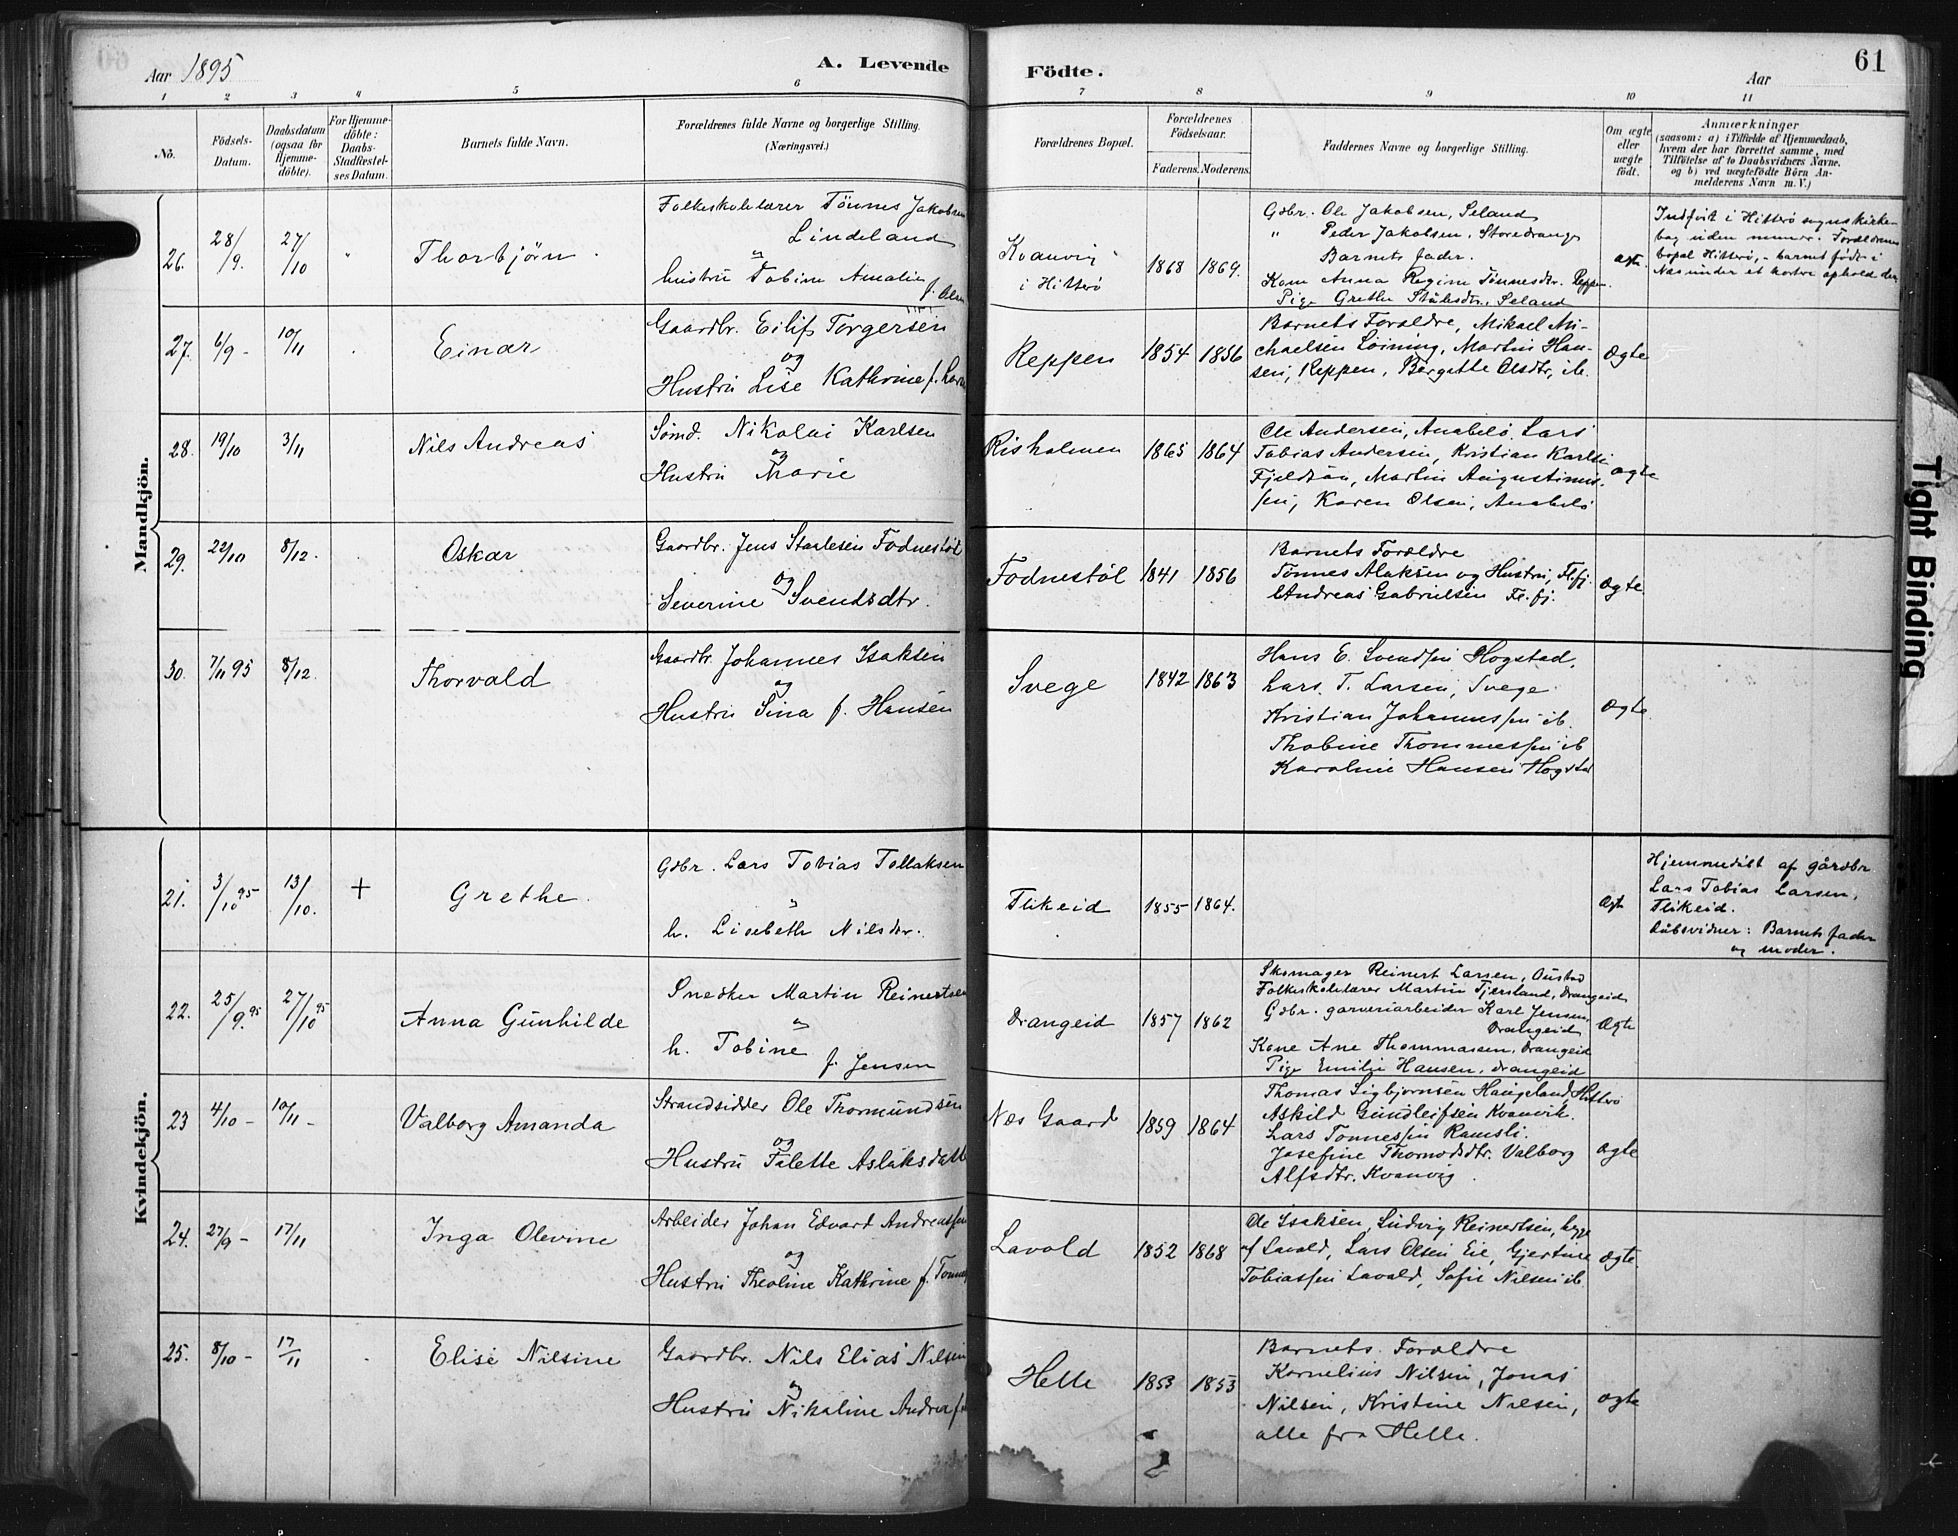 Aar 1895
A. Levende Födte.
Aar
61
1 2 3 4 5 6 7 8 9 10 11
No.
Födsels-
Datum.
Daabsdatum
(ogsaa for
Hjemme-
döbte).
For Hjemme-
döbte:
Daabs-
Stadfæstel-
ses Datum.
Barnets fulde Navn.
Forældrenes fulde Navne og borgerlige Stilling.
(Næringsvei.)
Forældrenes Bopæl.
Forældrenes
Födselsaar.
Faderens. Moderens.
Faddernes Navne og borgerlige Stilling.
Om ægte
eller
uægte
födt.
Anmærkninger
(saasom: a) i Tilfælde af Hjemmedaab,
hvem der har forrettet samme, med
Tilföielse af to Daabsvidners Navne.
og b) ved uægtefödte Börn An-
melderens Navn m. V.)
Mandkjön.
26. 28/9. 27/10 " Thorbjörn.
Folkeskolelærer Tönnes Jakobsen
Lindeland
"
hustru Tobine Amalie
f. Olsen
Kvanvig
i Hitterö
1868 1869.
Gdbr. Ole Jakobsen, Seland
" Peder Jakobsen, Storedrange
Barnets fader.
Kone Anna Regine Tönnesdtr. Reppen.
Pige Grethe Ståledtr. Seland
ægte.
Indført i Hitterö sognskirke-
bog uden numer. Forældrenes
bopæl Hitterö, - barnet født i
Næs under et kortere ophold der
27. 6/9 - 10/11 . Einar
Gaardbr. Eilif Torgersen
og
Hustru Lise Kathrine f. Larsen
Reppen
1854 1856
Barnets Forældre, Mikael Mi-
chaelsen Löining, Martin Han-
sen, Reppen, Bergitte Olsdtr, ib.
Ægte
28. 19/10 3/11 Nils Andreas
Sömd. Nikolai Karlsen
og
Hustru Marie
Risholmen
1865 1864
Ole Andersen, Anabelö. Lars
Tobias Andersen, Kristian Karlsen
Fjeldsaa, Martin Augustinus-
sen, Karen Olsen, Anabelö
ægte
29. 22/10 8/12. Oskar
Gaardbr. Jens Staalesen Fodnestöl
og
Severine Svendsdtr.
Fodnestöl
1841 1856
Barnets Forældre
Tönnes Alaksen og Hustru, Fl.fj.
Andreas Gabrielsen Fl.fj.
Ægte.
30. 7/11 95 8/12. Thorvald
Gaardbr. Johannes Isaksen
og
Hustru Sina f. Hansen
Svege
1842 1863
Hans E. Svendsen Hogstad,
Lars T. Larsen, Svege
Kristian Johannessen ib.
Thobine Thommessen ib
Karoline Hansen Hogstad
Ægte.
Kvindekjön.
21. 3/10 95 13/10. + Grethe.
Gdbr. Lars Tobias Tollaksen
"
h. Lisebeth Nilsdtr.
Flikeid
1855 1864.
Ægte
Hjemmedöbt af gårdbr
Lars Tobias Larsen,
Flikeid.
Dåbsvidner: Barnets fader
og moder.
22. 25/9. 95 27/10 95 Anna Gunhilde
Snedker Martin Reinertsen
"
h. Tobine
f. Jensen
Drangeid
1857 1862
Skomager Reinert Larsen, Oustad
Folkeskolelærer Martin Tjersland, Drangeid
Gdbr. garveriarbeider Karl Jensen,
Drangeid
Kone Ane Thommasen, Drangeid
Pige Emilie Hansen, Drangeid
Ægte
23 4/10 - 10/11 - Valborg Amanda
Strandsidder Ole Thormundsen
og
Hustru Talette Aslaksdatter
Næs Gaard
1859 1864
Thomas Sigbjornsen Haugeland, Hitterö
Askild Gundleifsen Kvanvik.
Lars Tonnessen Ramsli.
Josefine Thormodsdtr. Valborg
Alfsdtr. Kvanvig.
ægte
24. 27/9 - 17/11 Inga Olevine
Arbeider Johan Edvard Andreassen
og
Hustru Theoline Kathrine f. Tonnes
Lavold
1852 1868
Ole Isaksen, Ludvig Reinertsen, begge
af Lavold, Lars Olsen Eie, Gjertine
Tobiassen Lavold, Sofie Nilsen ib.
Ægte.
25. 8/10 - 17/11 . Elise Nilsine
Gaardbr. Nils Elias Nilsen
og
Hustru Nikoline Andrea f.
Helle
1853 1853
Barnets Forældre
Kornelius Nilsen, Jonas
Nilsen, Kristine Nilsen,
alle fra Helle.
ægte
Tight Binding